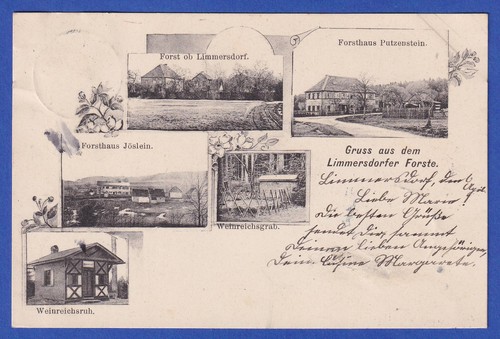 Forst ob Limmersdorf.
Forsthaus Putzenstein.
Forsthaus Jöslein.
Gruss aus dem
Limmersdorfer Forste.
Weinreichsgrab.
Weinreichsruh.
Limmersdorf, den
Liebe Marie!
die besten Grüße
sendet dir, sammt
deinen lieben Angehörigen,
dein Cusine Margarete.